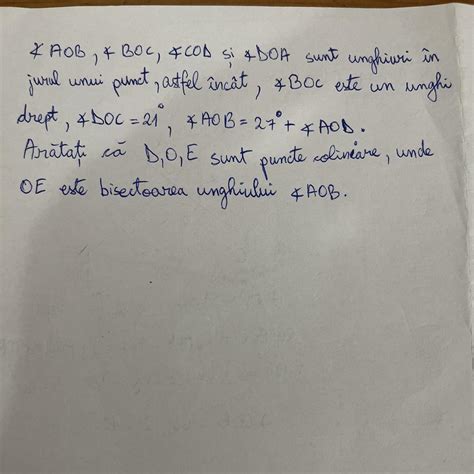 ∢AOB, ∢BOC, ∢COD și ∢DOA sunt unghiuri în
jurul unui punct, astfel încât, ∢BOC este un unghi
drept, ∢DOC = 21°, ∢AOB = 27° + ∢AOD.
Arătați că D,O,E sunt puncte colineare, unde
OE este bisectoarea unghiului ∢AOB.